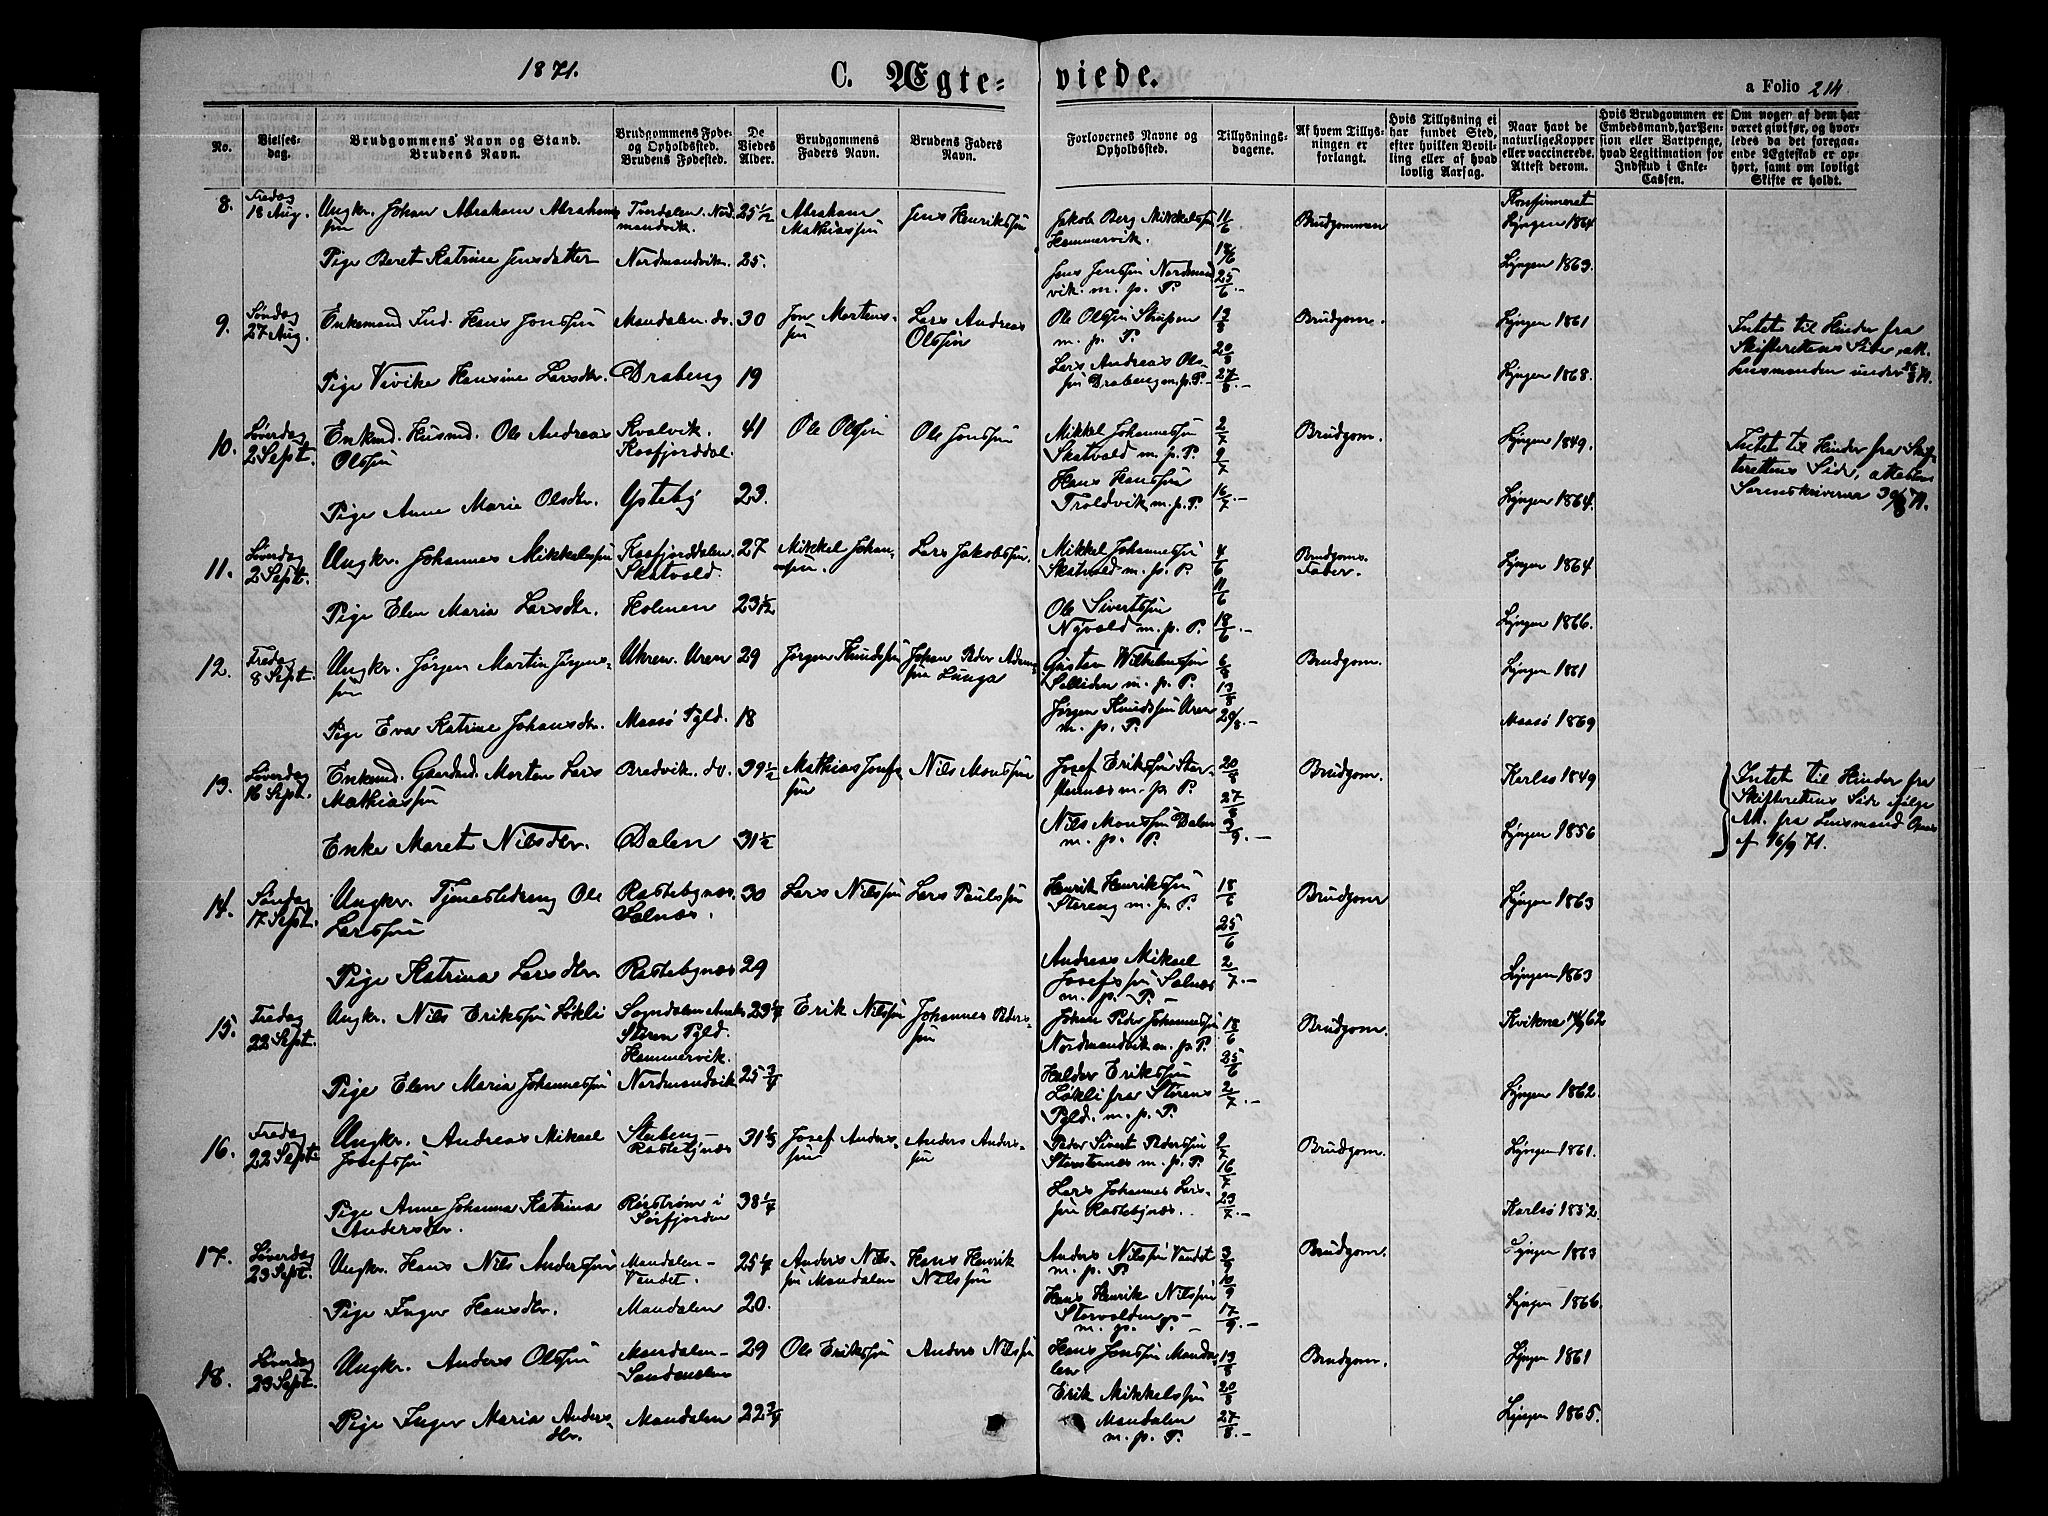 1871.
C. Ægte-
viede.
a Folio 214
No.
Vielses-
dag.
Brudgommens Navn og Stand.
Brudens Navn.
Brudgommens Føde-
og Opholdssted.
Brudens Fødested.
De
Viedes
Alder.
Brudgommens
Faders Navn.
Brudens Faders
Navn.
Forlovernes Navne og
Opholdssted.
Tillysnings-
dagene.
Af hvem Tillys-
ningen er
forlangt.
Hvis Tillysning ei
har fundet Sted,
efter hvilken Bevil-
ling eller af hvad
lovlig Aarsag.
Naar havt de
naturlige Kopper
eller vaccinerede.
Attest derom.
Hvis Brudgommen er
Embedsmand, har Pen-
sion eller Vartpenge,
hvad Legitimation for
Indskud i Enke-
Cassen.
Om nogen af dem har
været gift før, og hvor-
ledes da det foregaa-
ende Ægteskab er op-
hørt, samt om lovligt
Skifte er holdt.
8. Fredag
18 Aug.
Ungkr. Johan Abraham Abrahams
søn
Nord
mandvik.
25 1/2
Abraham
Mathiassøn
Jens Henrikssøn
Jakob Berg Mikkelsøn
Hammervik.
11/6
18/6
Brudgommen
Konfirmeret
Lyngen 1864
Pige Beret Katrine Jensdatter
Nordmandvik.
25.
Jens Jenssøn Nordmand
vik. m. p. P.
25/6 .-
Lyngen 1863.
9. Søndag
27 Aug.
Enkemand Ind. Hans Jonssøn
Mandalen. do.
30
Jon Mortens-
søn
Lars Andreas
Olssøn
Ole Olssøn
m. p. P.
13/8
20/8
Brudgom.
Lyngen 1861
Intet til Hinder fra
Skifterettens Side, att.
Lensmanden under
Pige Vivike Hansine Larsdtr.
Drabeng
19
Lars Andreas Ols-
søn Drabeng m. p. P.
27/8 .-
Lyngen 1868.
10. Løverdag
2 Sept.
Enkmd. Husmd. Ole Andreas
Olssøn
Kvalvik.
Kaafjorddal.
41
Ole Olssøn
Ole Jonssøn
Mikkel Johannessøn
Skatvold m. p. P.
2/7
9/7
Brudgom.
Lyngen 1849.
Intet til Hinder fra Skif-
terettens Side, attesten
Sorenskriveren 30/8 71.
Pige Anne Marie Olsdtr.
Ysteby
23.
Hans Hanssøn
Troldvik m. p. P.
16/7 .-
Lyngen 1864.
11. Løverdag
2 Sept.
Ungkr. Johannes Mikkelssøn
Kaafjorddalen.
Skatvold.
27
Mikkel Johan-
søn.
Lars Jakobssøn.
Mikkel Johannessøn
Skatvold m. p. P.
4/6
11/6
Brudgoms
Fader.
Lyngen 1864
Pige Elen Maria Larsdtr.
Holmen
23 1/2
Ole Sivertssøn
Nyvold m. p. P.
18/6 .-
Lyngen 1866.
12. Fredag
8 Sept.
Ungkr. Jørgen Martin Jørgens-
søn
Ukren. Uren
29
Jørgen Knudssøn
Johan Peder Adam
søn Lunga
Gusten Wilhelmssøn
Solliden m. p. P.
6/8
13/8
Brudgom.
Lyngen 1861
Pige Eva Katrine Johansdtr.
Maasø Pgld.
18
Jørgen Knudssøn Uren
m. p. P.
20/8 .-
Maasø 1869
13. Løverdag
16 Sept.
Enkmd. Gaardmd. Morten Lars
Mathiassøn
Bredvik. do.
39 1/2
Mathias Josefs
søn
Nils Monssøn
Josef Erikssøn Stor-
m. p. P.
20/8
Brudgom.
Karlsø 1849
Intet til Hinder fra
Skifterettens Side ifølge
Att. fra Lensmand
af 16/9 71.
Enke Maret Nilsdtr.
Dalen
31 1/2
Nils Monssøn Dalen
m. p. P.
Lyngen 1856
14. Søndag
17 Sept.
Ungkr. Tjenestedreng Ole
Larssøn
Rastebynæs.
Solnæs.
30
Lars Nilssøn
Lars Paulssøn
Henrik Henrikssøn
Storeng m. p. P.
18/6
25/6
Brudgom
Lyngen 1863
Pige Katrina Larsdtr.
Rastebynæs
29
Andreas Mikael
Josefssøn Solnæs
m. p. P. -
2/7 .-
Lyngen 1863
15. Fredag
22 Sept.
Ungkr. Nils Erikssøn Løkli
Støren Pgld.
Hammervik.
Erik Nilssøn
Johannes Peders-
søn
Johan Peder Johannessøn
Nordmandvik m. p. P.
18/6
25/6
Brudgom.
Kvikne 14/9 62
Pige Elen Maria Johannessøn
Nordmandvik
25 3/4
Haldor Erikssøn
Løkli fra Størens
Pgld. m. p. P.
2/7 .-
Lyngen 1862.
16. Fredag
22 Sept.
Ungkr. Andreas Mikael
Josefssøn
Stubeng-
Rastebynæs
31 1/3
Josef Anders-
søn
Anders Anders-
søn
Peder Sivert Pederssøn
m. p. P.
2/7
16/7
Brudgom.
Lyngen 1861.
Pige Anne Johanna Katrina
Andersdtr.
i
Sørfjorden
38 1/4
Lars Johannes Lars-
søn Rastebynæs.
23/7 .-
Karlsø 1852.
17. Løverdag
23 Sept.
Ungkr. Hans Nils Anderssøn
Mandalen-
Vandet.
Anders Nils-
søn Mandalen
Hans Henrik
Nilssøn
Anders Nilssøn Vandet
m. p. P.
3/9
10/9
Brudgom.
Lyngen 1863
Pige Inger Hansdtr.
Mandalen
20.
Hans Henrik Nilssøn
Storvolden
m. p. P. -
17/9 .-
Lyngen 1866.
18. Løverdag
23 Sept.
Ungkr. Anders Olssøn
Mandalen-
29
Ole Erikssøn
Anders Nilssøn
Hans Jonssøn Manda
len
13/8
20/8
Brudgom.
Lyngen 1861
Pige Inger Maria Anders-
dtr.
Mandalen
22 3/4
Erik Mikkelssøn
Mandalen
m. p. P.
27/8 .-
Lyngen 1865.